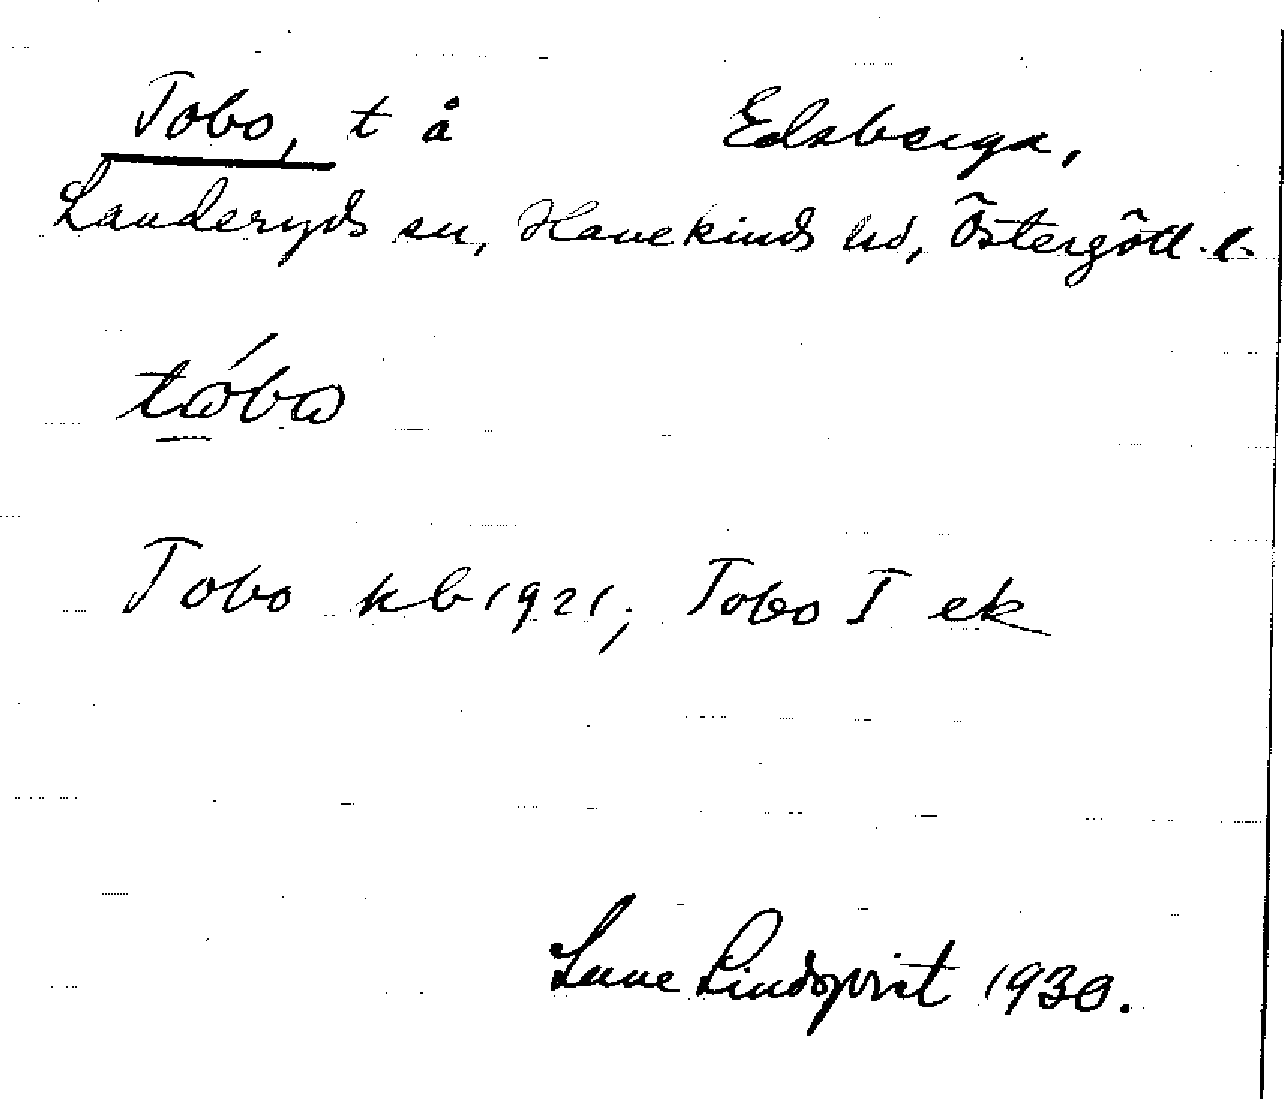 Tobo, t å Edsberga,
Landeryds sn, Hanekinds hd, Östergötl. l.
tóbo
Tobo kb 1921; Tobo I ek
Sune Lindqvist 1930.